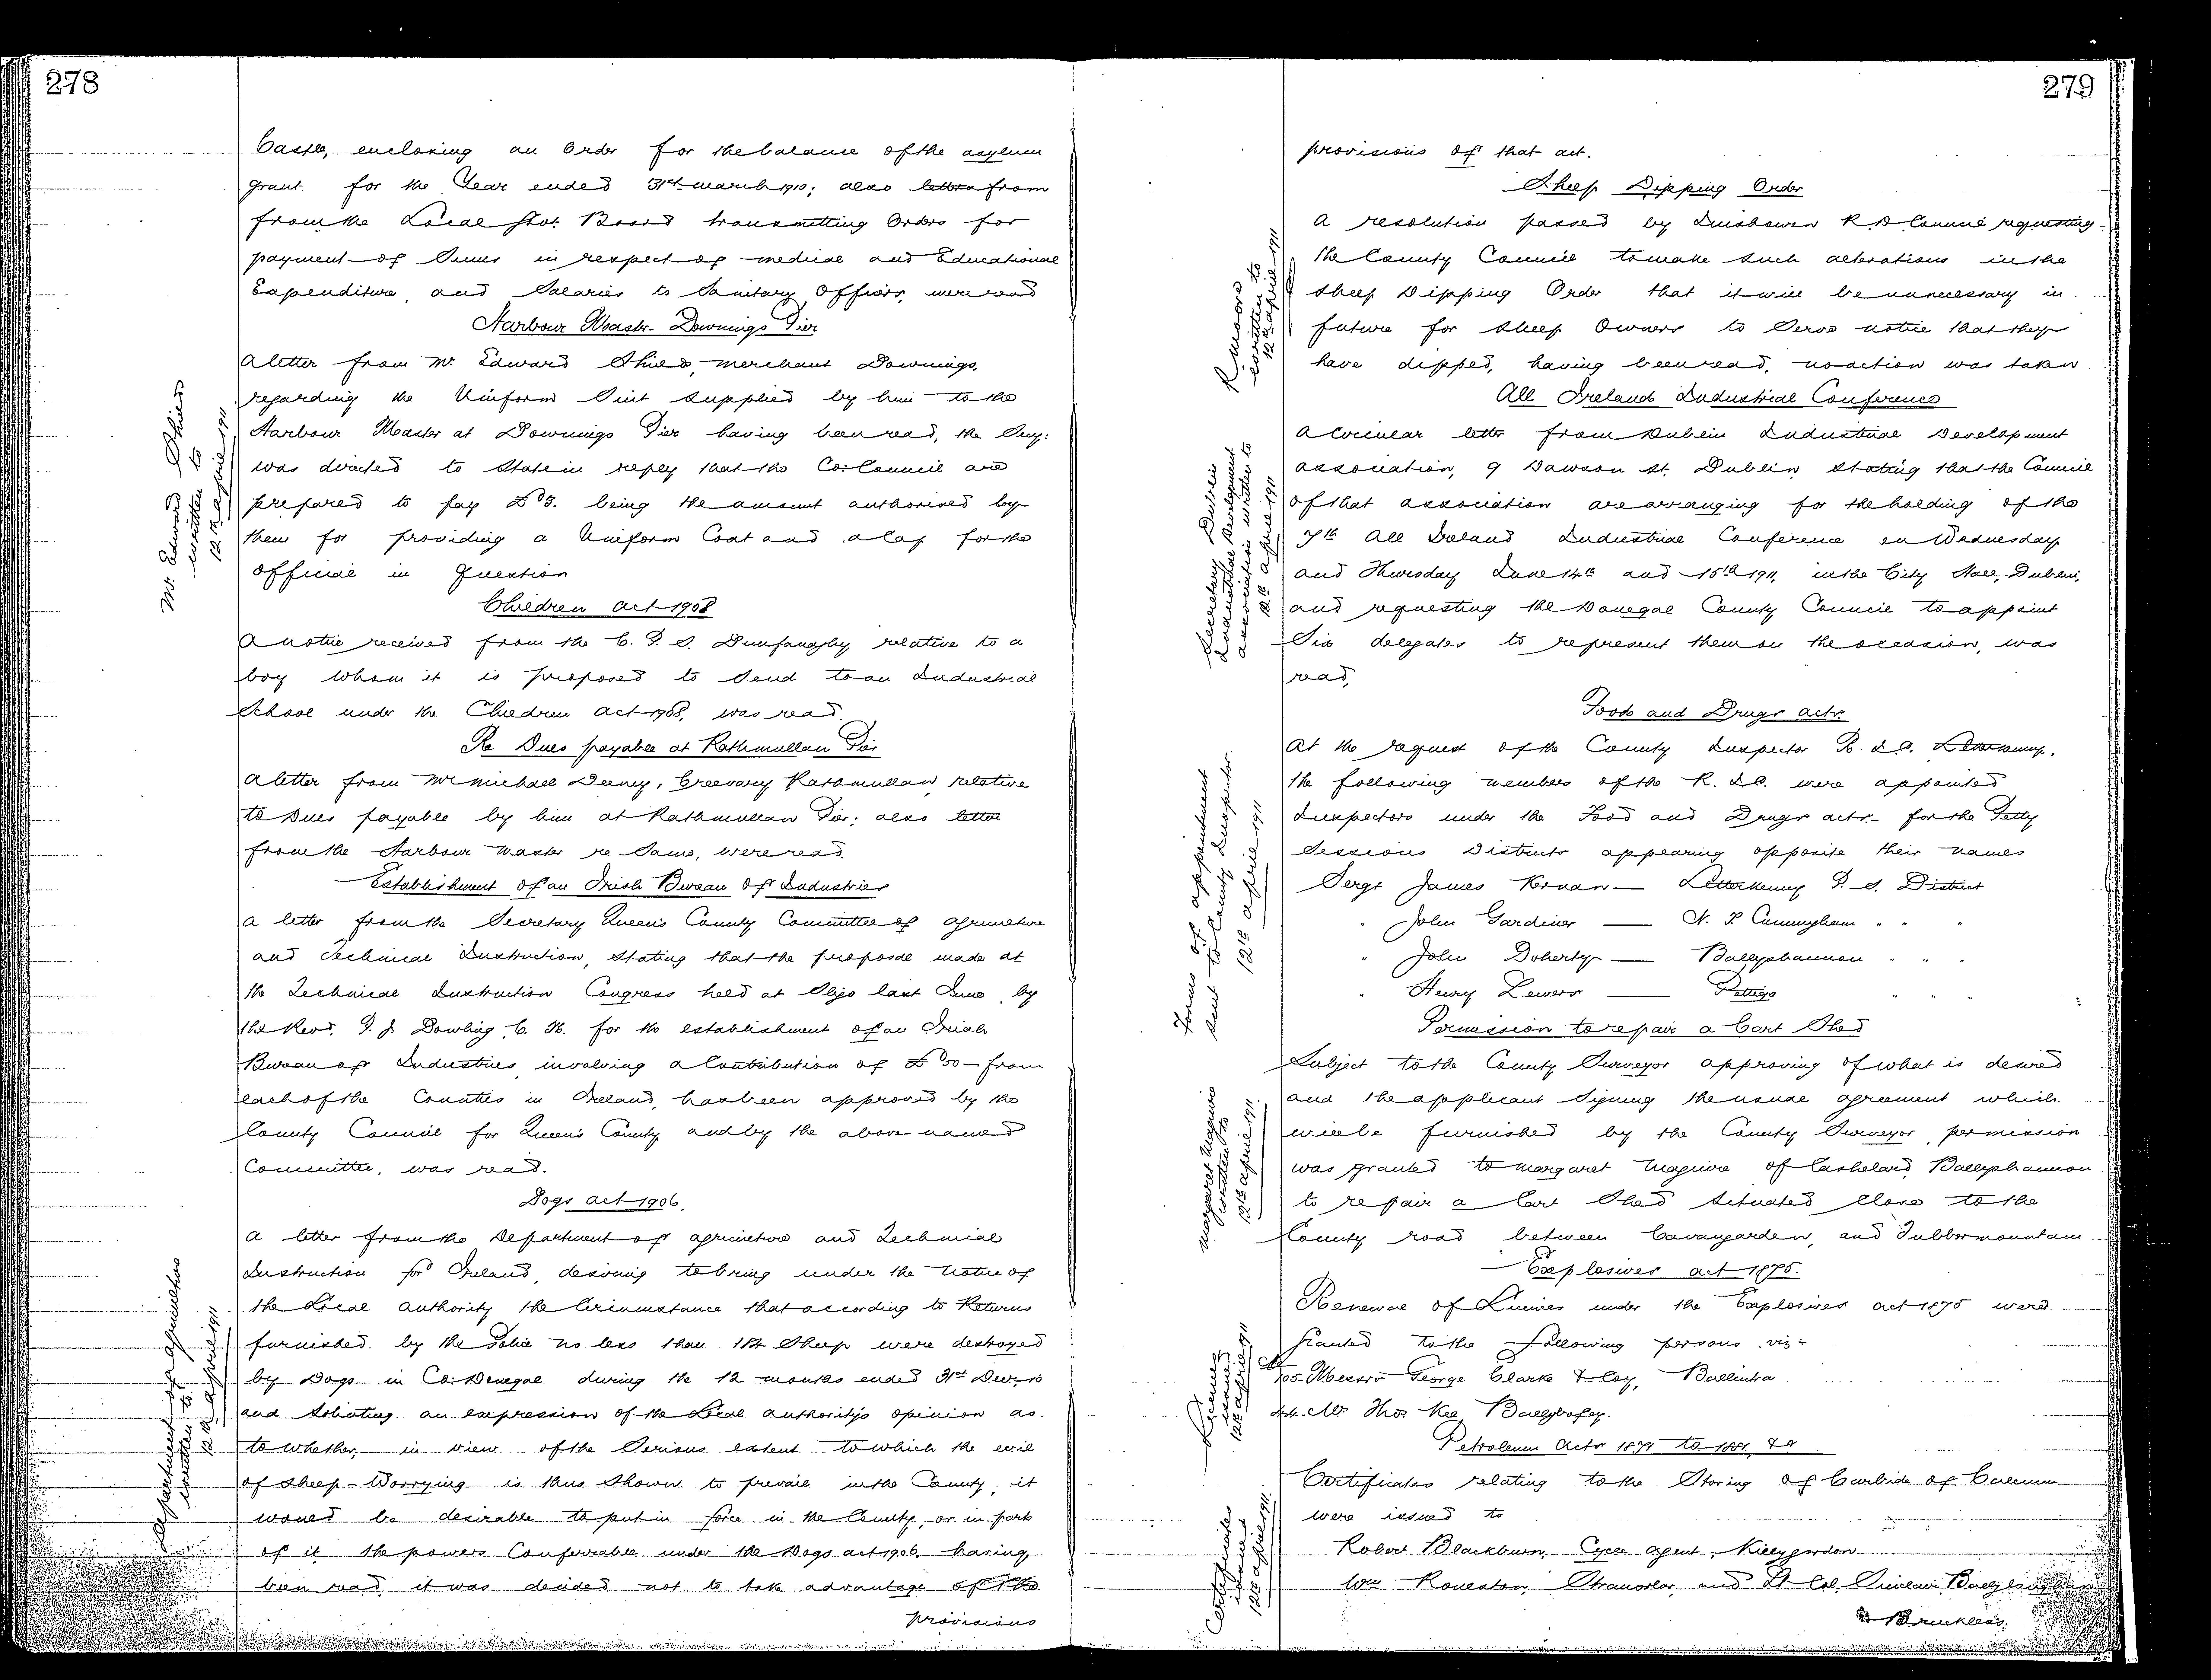 278
Castle, enclosing an Order for the balance of the asylum
grant for the Year ended 31st march 1910; also letters from
from the Local Govt. Board transmitting Orders for
payment of Sums in respect of medical and Educational
Expenditure, and Salaries to Sanitary Officers, were read
Harbour Master Downings Pier
A letter from Mr. Edward Shield, merchant Downings,
regarding the Uniform Suit supplied by him to the
Harbour Master at Downings Pier having been read, the Secy:
was directed to State in reply that the Co: Council are
prepared to pay £3. being the amount authorised by
them for providing a Uniform Coat and a Cap for the
official in Question
Mr. Edward Shield
written to
12th april 1911
Children act 1908
A notice received from the C. P. S. Dunfanaghy relative to a
boy whom it is proposed to Send to an Industrial
School under the Children act 1908, was read.
Re Dues payable at Rathmullan Pier
A letter from Mr michael Deeney, Creevary Rathmullan, relative
to Dues payable by him at Rathmullan Pier; also letter
from the Harbour Master re Same, were read.
Establishment of an Irish Bureau of Industries
a letter from the Secretary Queen's County Committee of agriculture
and Technical Instruction, Stating that the proposal made at
the Technical Instruction Congress held at Sligo last June, by
the Revd. P. J. Dowling C. M. for the establishment of an Irish
Bureau of Industries, involving a Contribution of £50 – from
each of the Counties in Ireland, has been approved by the
County Council for Queen's County, and by the above named
Committee, was read.
Dogs act 1906.
a letter from the Department of agriculture and Technical
Instruction for Ireland, desiring to bring under the notice of
the Local authority the Circumstance that according to Returns
furnished by the Police no less than 184 Sheep were destroyed
by Dogs in Co: Donegal during the 12 months ended 31st Decr. 10
and Soliciting an expression of the Local authority's opinion as
to whether, in view of the Serious extent to which the evil
of Sheep-Worrying is thus Shown to prevail in the County, it
would be desirable to put in force in the County, or in part
of it the powers Conferrable under the Dogs act 1906, having
been read, it was decided not to take advantage of the
provisions
Department of agriculture
written to
12th april 1911
279
provisions of that act.
Sheep Dipping Order
A resolution passed by Inishowen R. D Council requesting
the County Council to make such alterations in the
Sheep Dipping Order that it will be unnecessary in
future for Sheep Owners to Serve notice that they
have dipped, having been read, no action was taken.
written to
12th april 1911
All Ireland Industrial Conference
A Circular letter from Dublin Industrial Development
association, 9 Dawson St. Dublin, Stating that the Council
of that association are arranging for the holding of the
7th All Ireland Industrial Conference on Wednesday
and Thursday June 14th and 15th 1911, in the City Hall, Dublin,
and requesting the Donegal County Council to appoint
Six delegates to represent them on the occasion, was
read,
Secretary Dublin
Industrial Development
association written to
12th april 1911
Food and Drugs acts.
At the request of the County Inspector R. I. C. Letterkenny,
the following members of the R. I. C. were appointed
Inspectors under the Food and Drugs acts for the Petty
Sessions Districts appearing opposite their names
Sergt James Kernan — Letterkenny P. S. District
" John Gardiner — N. T Cunningham " " "
" John Doherty — Ballyshannon " " "
" Henry Lewers — Pettigo " " "
Forms of appointment
sent to County Inspector
12th april 1911
Permission to repair a Cart Shed
Subject to the County Surveyor approving of what is desired
and the applicant Signing the usual agreement which
will be furnished by the County Surveyor, permission
was granted to Margaret Maguire of Cashelard, Ballyshannon
to repair a Cart Shed Situated Close to the
County road between Cavangarden, and Tubbermountain
Margaret Maguire
written to
12th april 1911.
Explosives act 1875.
Renewal of Licences under the Explosives act 1875 were
Granted to the following persons. viz:-
No 105. Messrs George Clarke & Coy, Ballintra
Mr Thos Kee, Ballybofey.
Licences
issued
12th april 1911
Petroleum Acts 1871 to 1881, &c
Certificates relating to the Storing of Carbide of Calcium
were issued to
Robert Blackburn, Cycle agent, Killygordon
Wm Rouleston, Stranorlar, and Lt Col. Sinclair,
Bruckless.
Certificates
issued
12th april 1911.